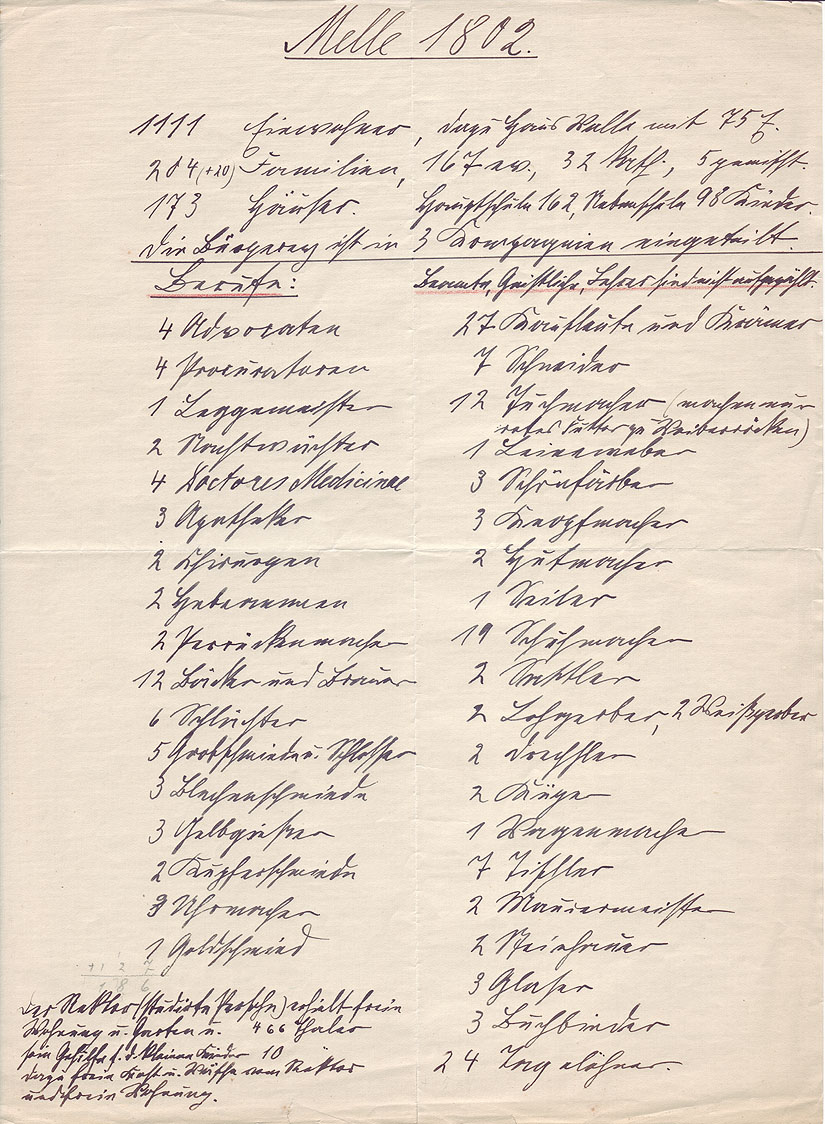 Melle 1802.
1111 Einwohner, dazu Haus Walle mit 75 E.
204 (+20) Familien, 167 ev., 32 kath., 5 gemischt.
173 Häuser. Hauptschule 162, Nebenschule 98 Kinder.
Die Bürgerey ist in 3 Kompagnien eingeteilt.
Berufe:
Beamte, Geistliche, Lehrer sind nicht aufgezählt.
4 Advocaten
4 Procuratoren
1 Leggemeister
2 Nachtwächter
4 Doctores Medicinae
3 Apotheker
2 Chirurgen
2 Hebammen
2 Perrückenmacher
12 Bäcker und Brauer
6 Schlächter
5 Grobschmiede u. Schlosser
3 Blechenschmiede
3 Gelbgießer
2 Kupferschmiede
3 Uhrmacher
1 Goldschmied
27 Kaufleute und Krämer
7 Schneider
12 Tuchmacher (machen nur
rotes Futter zu Weiberröcken)
1 Leineweber
3 Schönfärber
3 Knopfmacher
2 Hutmacher
1 Seiler
19 Schuhmacher
2 Sattler
2 Lohgerber, 2 Weißgerber
2 Drechsler
2 Küper
1 Wagenmacher
7 Tischler
2 Mauermeister
2 Steinhauer
3 Glaser
3 Buchbinder
24 Tagelöhner.
Der Rektor (studirte Person) erhält freie
Wohnung u. Garten u. 466 Thaler
sein Gehilfe f. d. kleinen Kinder 10
dazu freie Kost u. Wäsche vom Rektor
und freie Wohnung.